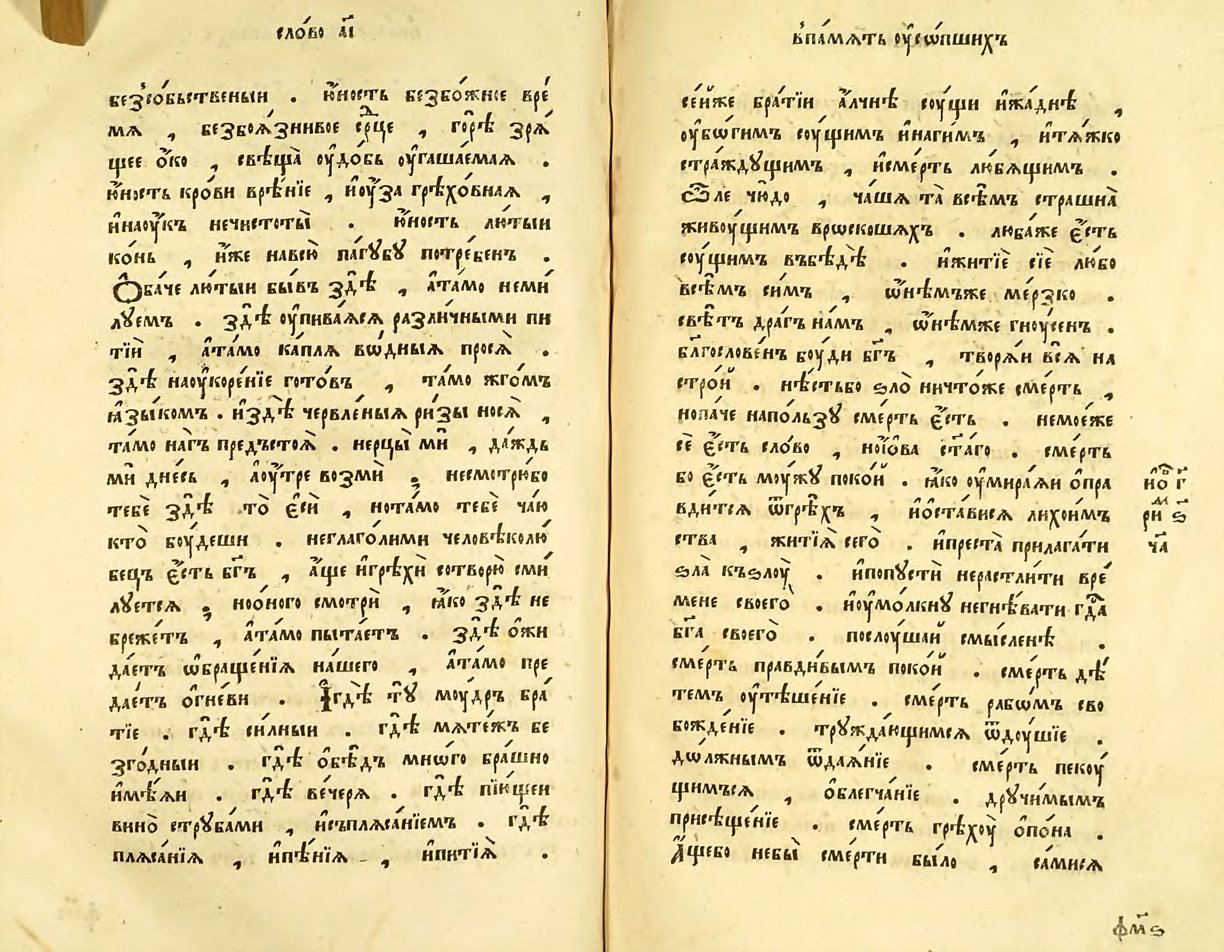 сло́во а҃і
безсо́бьственыи . ю҆́ность безбо́жное вре́
мѧ , безбоѧ́знивое ср҃це , го́рѣ зрѧ́
щее о҆́ко , свѣща̀ оу҆до́бь оу҆гаша́емаѧ .
ю҆́ность кро́ви врѣ́нїе , и҆оу́за грѣхо́внаѧ ,
и҆наоу́къ нечистоты̀ . ю҆́ность лю́тыи
ко́нь , и҆́же навсю̀ па́губꙋ потре́бенъ .
Ѻ҆ба́че лю́тыи бы́въ здѣ̀ , а҆та́мо неми́
лꙋемъ . здѣ̀ оу҆пива́ѧсѧ разли́чными пи
тїи̑ , а҆та́мо ка́плѧ вѡ́дныѧ просѧ̀ .
здѣ̀ наоу҆коре́нїе гото́въ , та́мо жго́мъ
ꙗ҆зы́комъ . и҆здѣ̀ червле́ныѧ ри́зы носѧ̀ ,
та́мо на́гъ предъстоѧ̀ . нерцы́ ми , да́ждь
мѝ дне́сь , а҆оу́тре возмѝ ; несмотрю́бо
тебѐ здѣ̀ то̀ є҆сѝ , нота́мо тебѐ ча́ю
кто̀ боу́деши . неглаго́лими человѣколю́
бецъ є҆́сть бг҃ъ , а҆́ще и҆грѣхѝ сотворю̀ сми́
лꙋетсѧ ; ноо҆́ного смотрѝ , ꙗ҆́ко здѣ̀ не
бреже́тъ , а҆та́мо пыта́етъ . здѣ̀ о҆жи
да́етъ ѡ҆браще́нїѧ на́шего , а҆та́мо пре
дае́тъ о҆гне́ви . І҆гдѣ̀ тꙋ̀ моу́дръ бра́
тїе . гдѣ̀ си́лныи . гдѣ̀ мѧте́жъ бе
зго́дныи . гдѣ̀ о҆бѣ́дъ мнѡ́го бра́шно
и҆мѣ́ѧи . гдѣ̀ вече́рѧ . гдѣ̀ пїю́щеи
вино̀ стрꙋба́ми , и҆съплѧса́нїемъ . гдѣ̀
плѧса́нїѧ , и҆пѣ́нїѧ , и҆питїѧ̀ .
впа́мѧть оу҆со́пшихъ
се́йже бра́тїи а҆́лчнѣ соу́щи и҆жа́днѣ ,
оу҆бѡ́гимъ соу́щимъ и҆наги́мъ , и҆тѧ́жко
стра́ждꙋщимъ , и҆сме́рть лю́бѧщимъ .
Ѽле чю́до , ча́шѧ та̀ всѣ́мъ страшна̀
живоу́щимъ врѡскошѧхъ . люба́же є҆́сть
соу́щимъ въбѣдѣ̀ . и҆житїѐ сїѐ лю́бо
всѣ́мъ си́мъ , ѡ҆нѣ́мъже ме́рзко .
свѣ́тъ дра́гъ на́мъ , ѡ҆нѣ́мже гноу́сенъ .
бл҃гослове́нъ боу́ди бг҃ъ , творѧ́и всѧ̀ на
стро́й . нѣ́стьбо ѕло̀ ничто́же сме́рть ,
нопа́че напо́льзꙋ сме́рть є҆́сть . немое́же
сѐ є҆́сть сло́во , ноі҆́ова ст҃а́го . сме́рть
бо є҆́сть моу́жꙋ поко́й . ꙗ҆́ко оу҆мира́ѧи о҆пра
вди́тсѧ ѿгрѣ́хъ , и҆оста́висѧ лихои́мъ
ства , житїѧ̀ сего̀ . и҆преста̀ прилага́ти
ѕла̀ къѕлоу̀ . и҆попꙋстѝ нерастли́ти вре́
мене своего̀ . и҆оу҆мо́лкнꙋ негнѣ́вати гд҃а
бг҃а своего̀ . послоу́шай смы́сленѣ .
сме́рть правди́вымъ поко́й . сме́рть дѣ́
темъ оу҆тѣше́нїе . сме́рть рабѡ́мъ сво
божде́нїе . трꙋжда́ющимсѧ ѿдоу́шїе .
дѡ́лжнымъ ѿда́ѧнїе . сме́рть пекоу́
щимъсѧ , о҆́блегча́нїе . дрꙋчи́мымъ
присѣще́нїе . сме́рть грѣхоу̀ о҆по́на .
А҆́щебо небы̀ сме́рти было̀ , са́мисѧ
ри ѕ
ча
фм҃ѕ